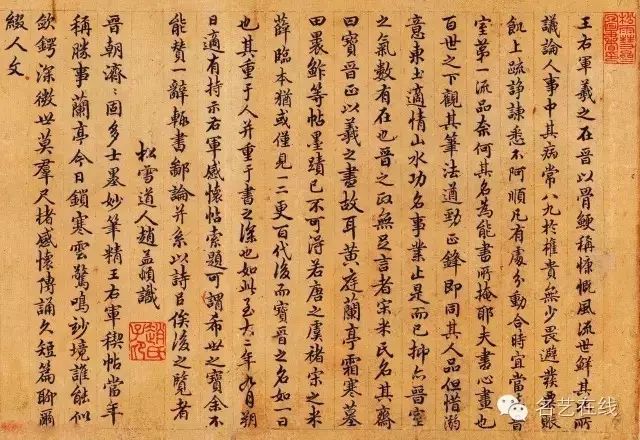 王右軍羲之在晉以骨鯁稱慷慨風流世鮮其所
議論人事中其病常八九於權貴無少畏避發粟賑
飢上疏諍諫悉不阿順凡有處分動合時宜當晉
室第一流品奈何其名為能書所掩耶夫書心畫也
百世之下觀其筆法遒勁正鋒即同其人品但惜溺
意東土適情山水功名事業止是而已抑亦晉室
之氣數有在也晉之政無足言者宋米氏名其齋
曰寶晉正以羲之書故耳黃庭蘭亭霜寒墓
田裹鮓等帖墨蹟已不可得若唐之虞褚宋之米
薛臨本猶或僅見一二更百代後而寶晉之名如一日
也其重于人并重于書之深也如此至大二年九月朔
日適有持示右軍感懷帖索題可謂希世之寶余不
能贊一辭輒書鄙論并系以詩㠯俟後之覽者
松雪道人趙孟頫識
趙氏子昂
晉朝濟〻固多士墨妙筆精王右軍稧帖當年
稱勝事蘭亭今日鎖寒雲驚鳴妙境誰能似
欽鍔深微世莫羣尺楮感懷傳誦久短篇聊爾
綴人文
名艺在线